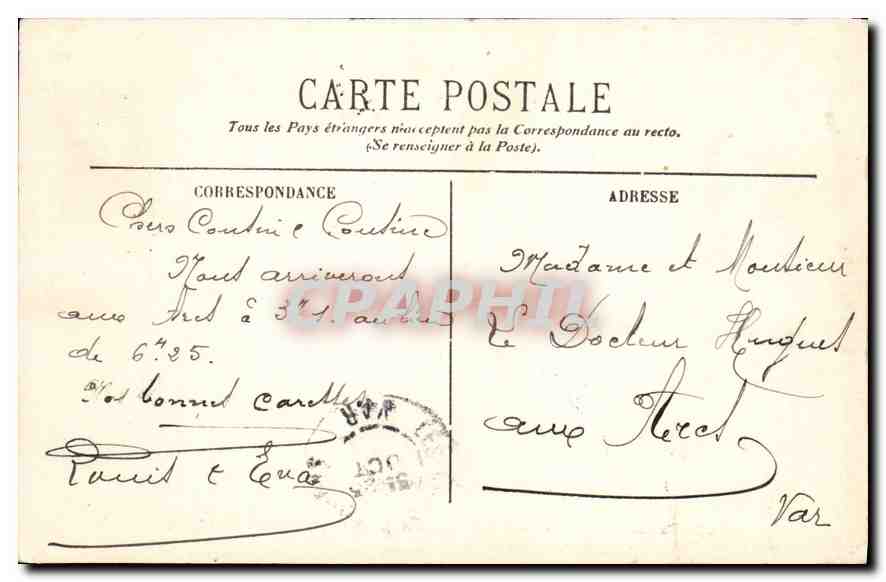 CARTE POSTALE
Tous les Pays étrangers n'acceptent pas la Correspondance au recto.
(Se renseigner à la Poste).
CORRESPONDANCE
Chers Cousin & Cousine
Nous arriverons
aux Arcs à 3h 1. au lieu
de 6h 25.
Nos bonnes caresses
Louis & Eva
ADRESSE
Madame et Monsieur
Le Docteur Hugues
aux Arcs
Var
VAR
OCT
CPAPHIL